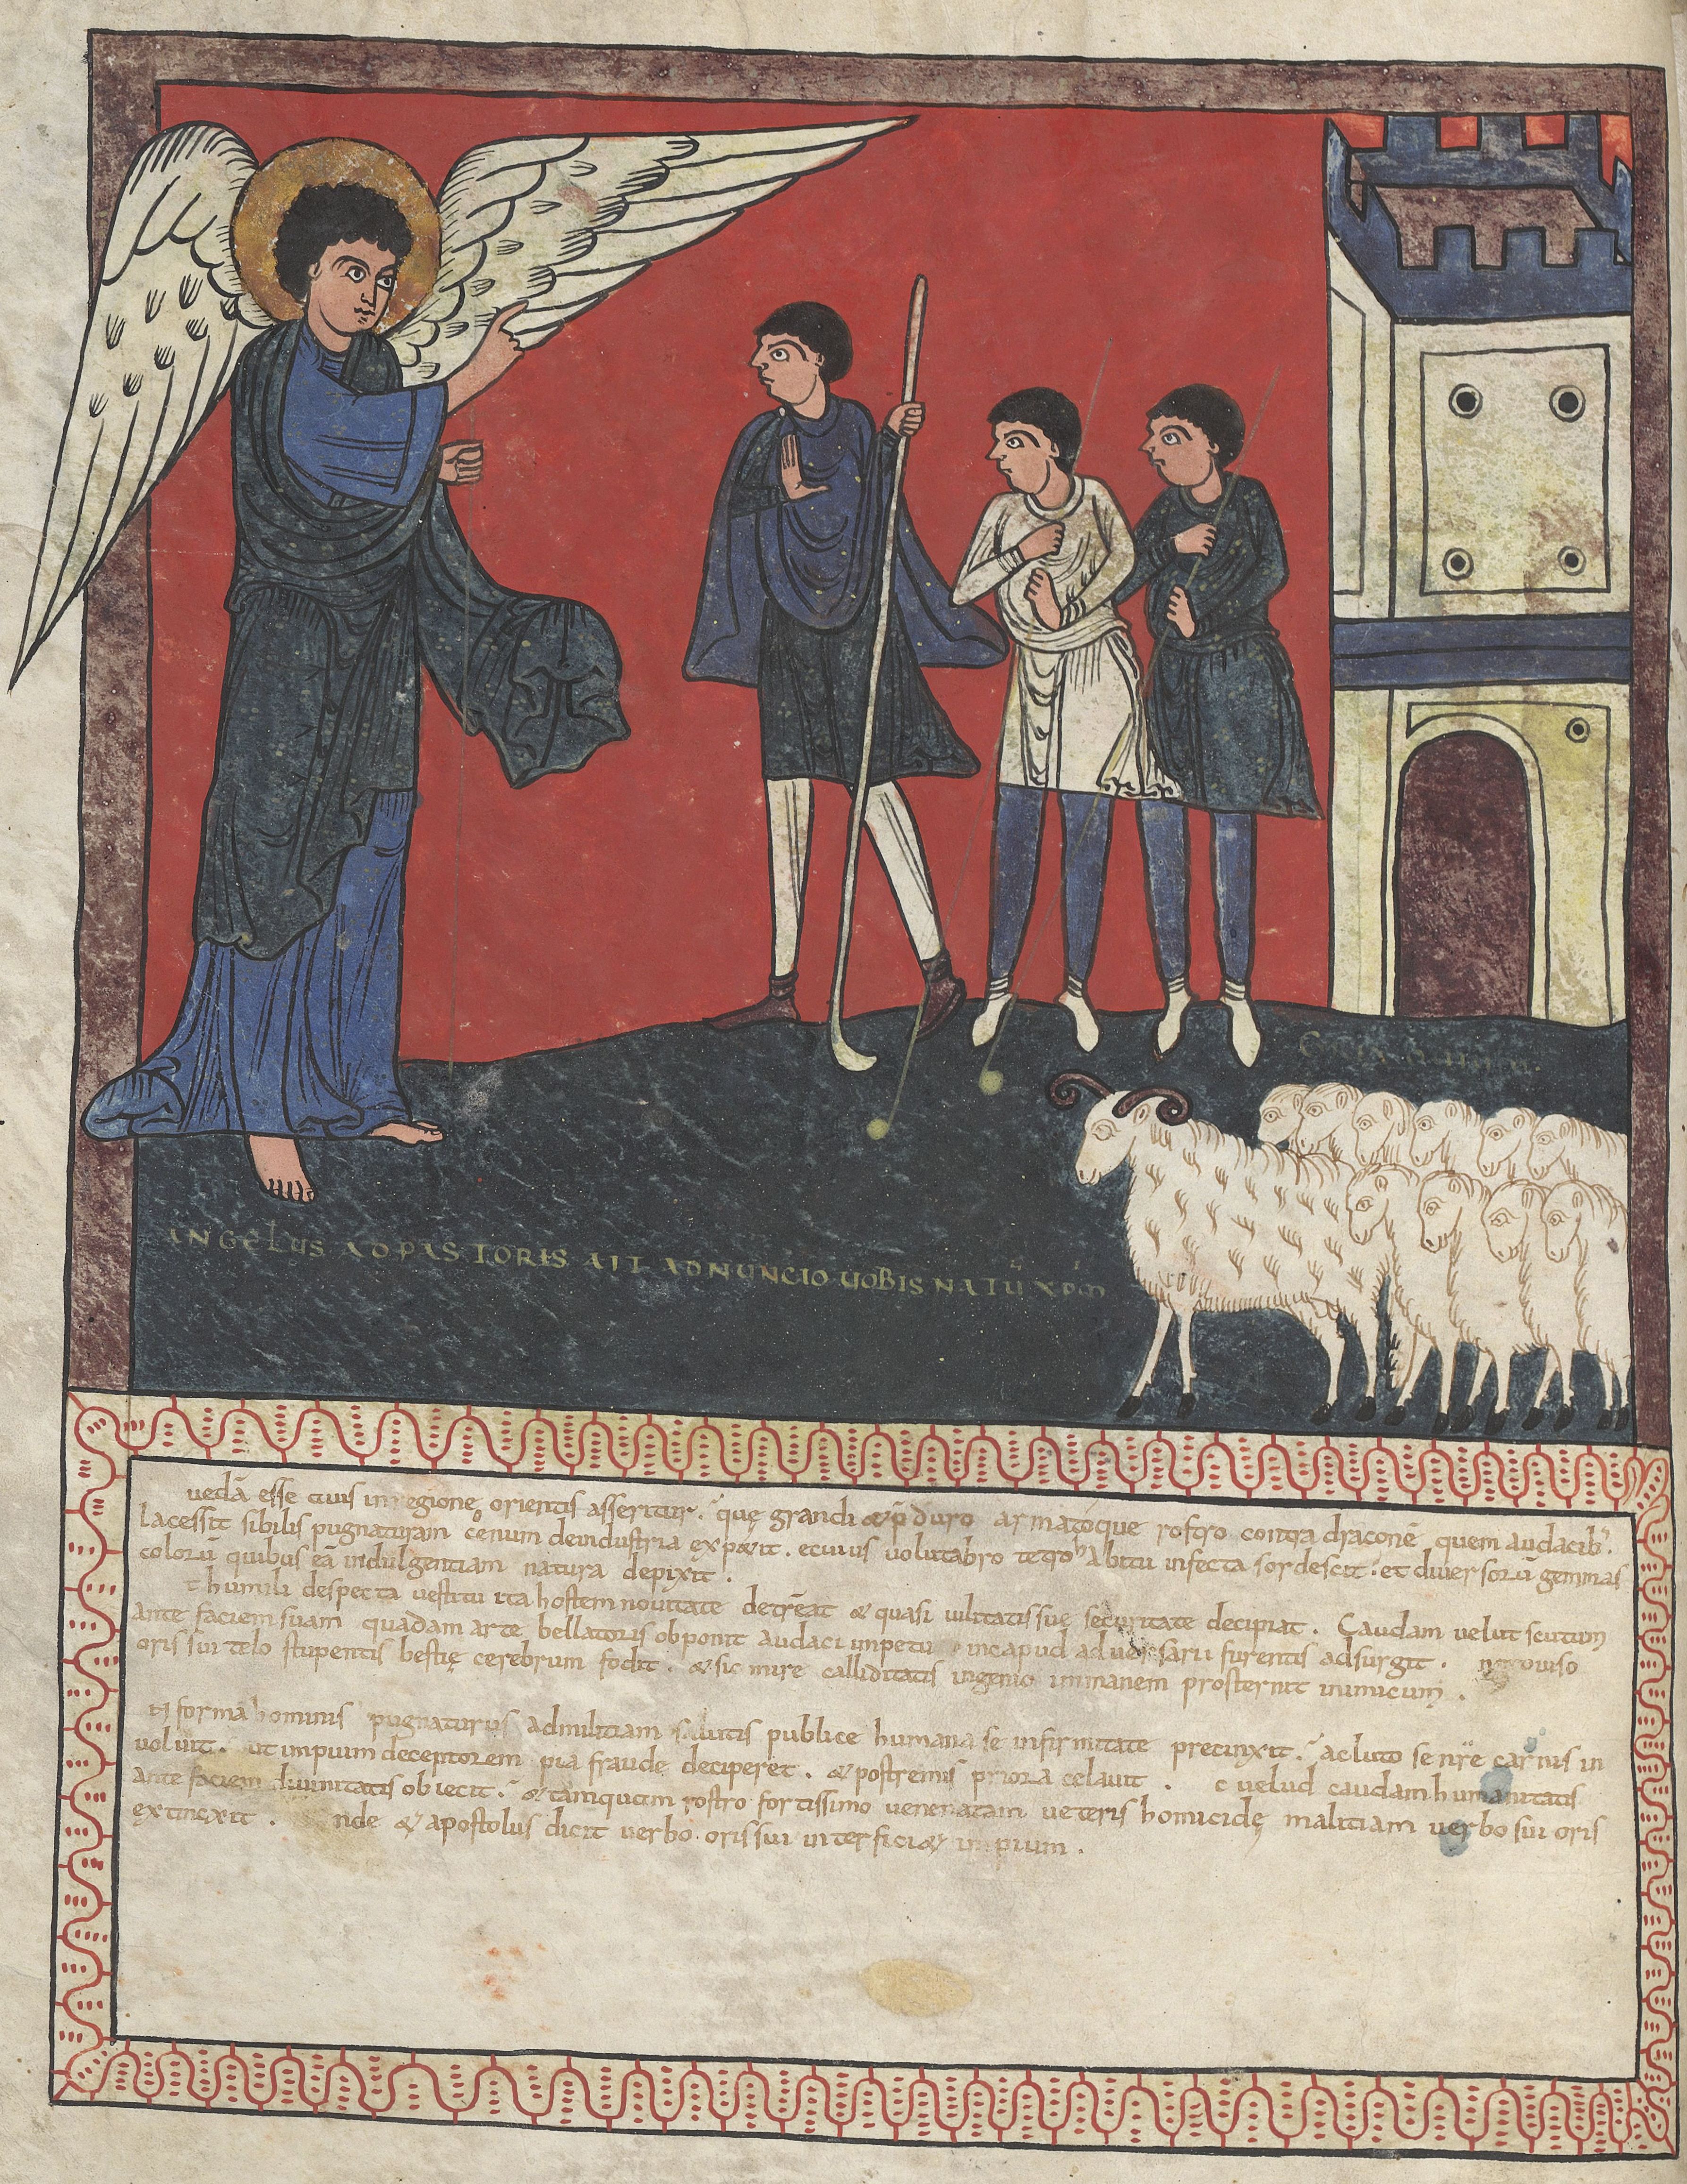 ANGELUS AD PASTORIS AIT ADNUNCIO UOBIS NATŪ XPM
uedā esse auis in regione orientis asseritur. que grandi & p duro armatoque rostro contra draconē quem audacibꝰ
lacessit sibilis pugnaturam cenum de industria expetit. et cuius uolutabro tetro abitu infecta sordescit. et diuersorū gemmas
colorū quibus eā indulgentiam natura depixit.
t humili despecta uestitu ita hostem nouitate det & quasi uilitatis sue securitate decipiat. Caudam uelut scutum
ante faciem suam quadam arte bellatoris obponit audaci impetu in capud aduersarii furentis adsurgit. 
oris sui telo stupentis bestię cerebrum fodit. & sic mire calliditatis ingenio immanem prosternit inimicum.
forma hominis pugnaturus ad militiam salutis publice humana se infirmitate precinxit. ac luto se nr̄e carnis in
uoluit. ut impium deceptorem pia fraude deciperet. & postremis priora celauit. c uelud caudam humanitatis
ante faciem diuinitatis obiecit. & tamquam rostro fortissimo uenenatam ueteris homicidę malitiam uerbo sui oris
extincxit. nde & apostolus dicit uerbo oris sui interfici& impium.